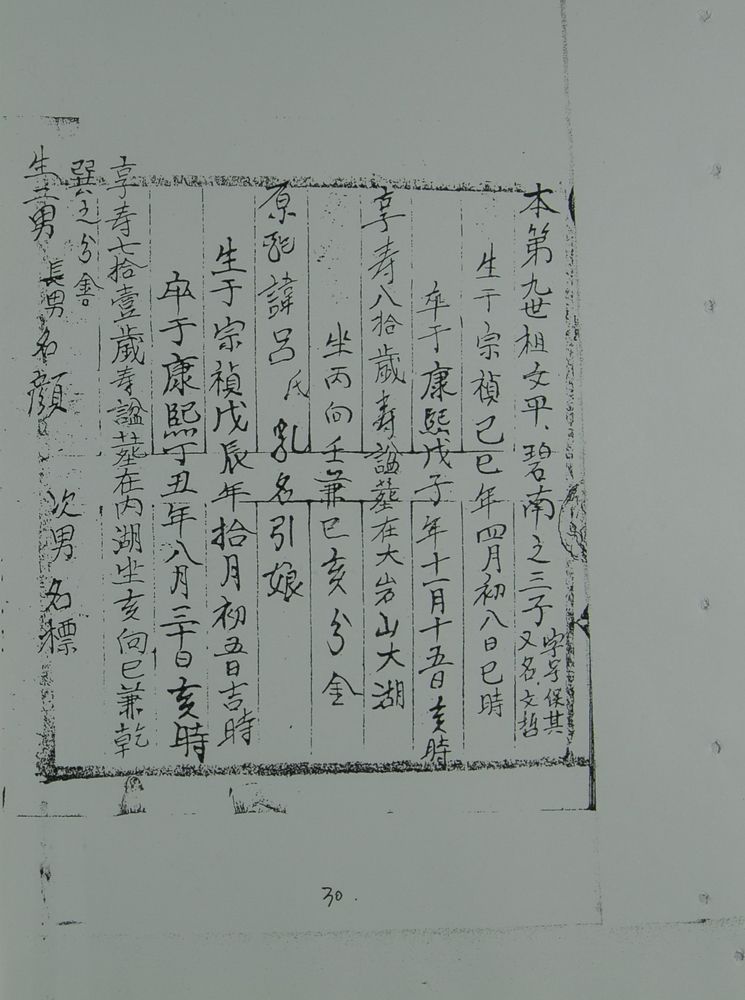 本第九世祖文平、碧南之三子 字号保其
又名文哲
生于宗禎己巳年四月初八日巳時
卒于康熙戊子年十一月十五日亥時
享寿八拾歲寿謚墓在大岩山大湖
坐丙向壬兼巳亥分金
原配諱呂氏乳名引娘
生于宗禎戊辰年拾月初五日吉時
卒于康熙丁丑年八月三十日亥時
享寿七拾壹歲寿謚墓在内湖坐亥向巳兼乾
巽之分金
生二男 長男名顏 次男名標
30.